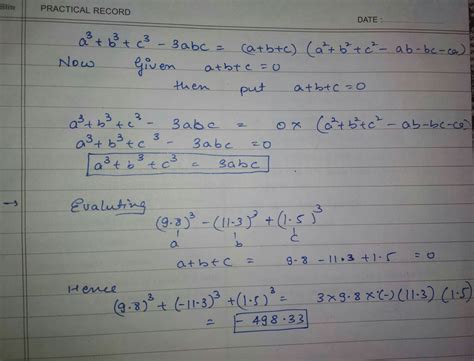 PRACTICAL RECORD
DATE :
a³ + b³ + c³ - 3abc = (a+b+c) (a²+b²+c² - ab-bc-ca)
Now Given a+b+c = 0
then put a+b+c = 0
a³ + b³ + c³ - 3abc = 0 × (a²+b²+c² - ab-bc-ca)
a³ + b³ + c³ - 3abc = 0
a³ + b³ + c³ = 3abc
→ Evaluting
(9.8)³ - (11.3)³ + (1.5)³
a b c
a+b+c = 9.8 - 11.3 + 1.5 = 0
Hence
(9.8)³ + (-11.3)³ + (1.5)³ = 3×9.8×(-)(11.3) (1.5)
= - 498.33